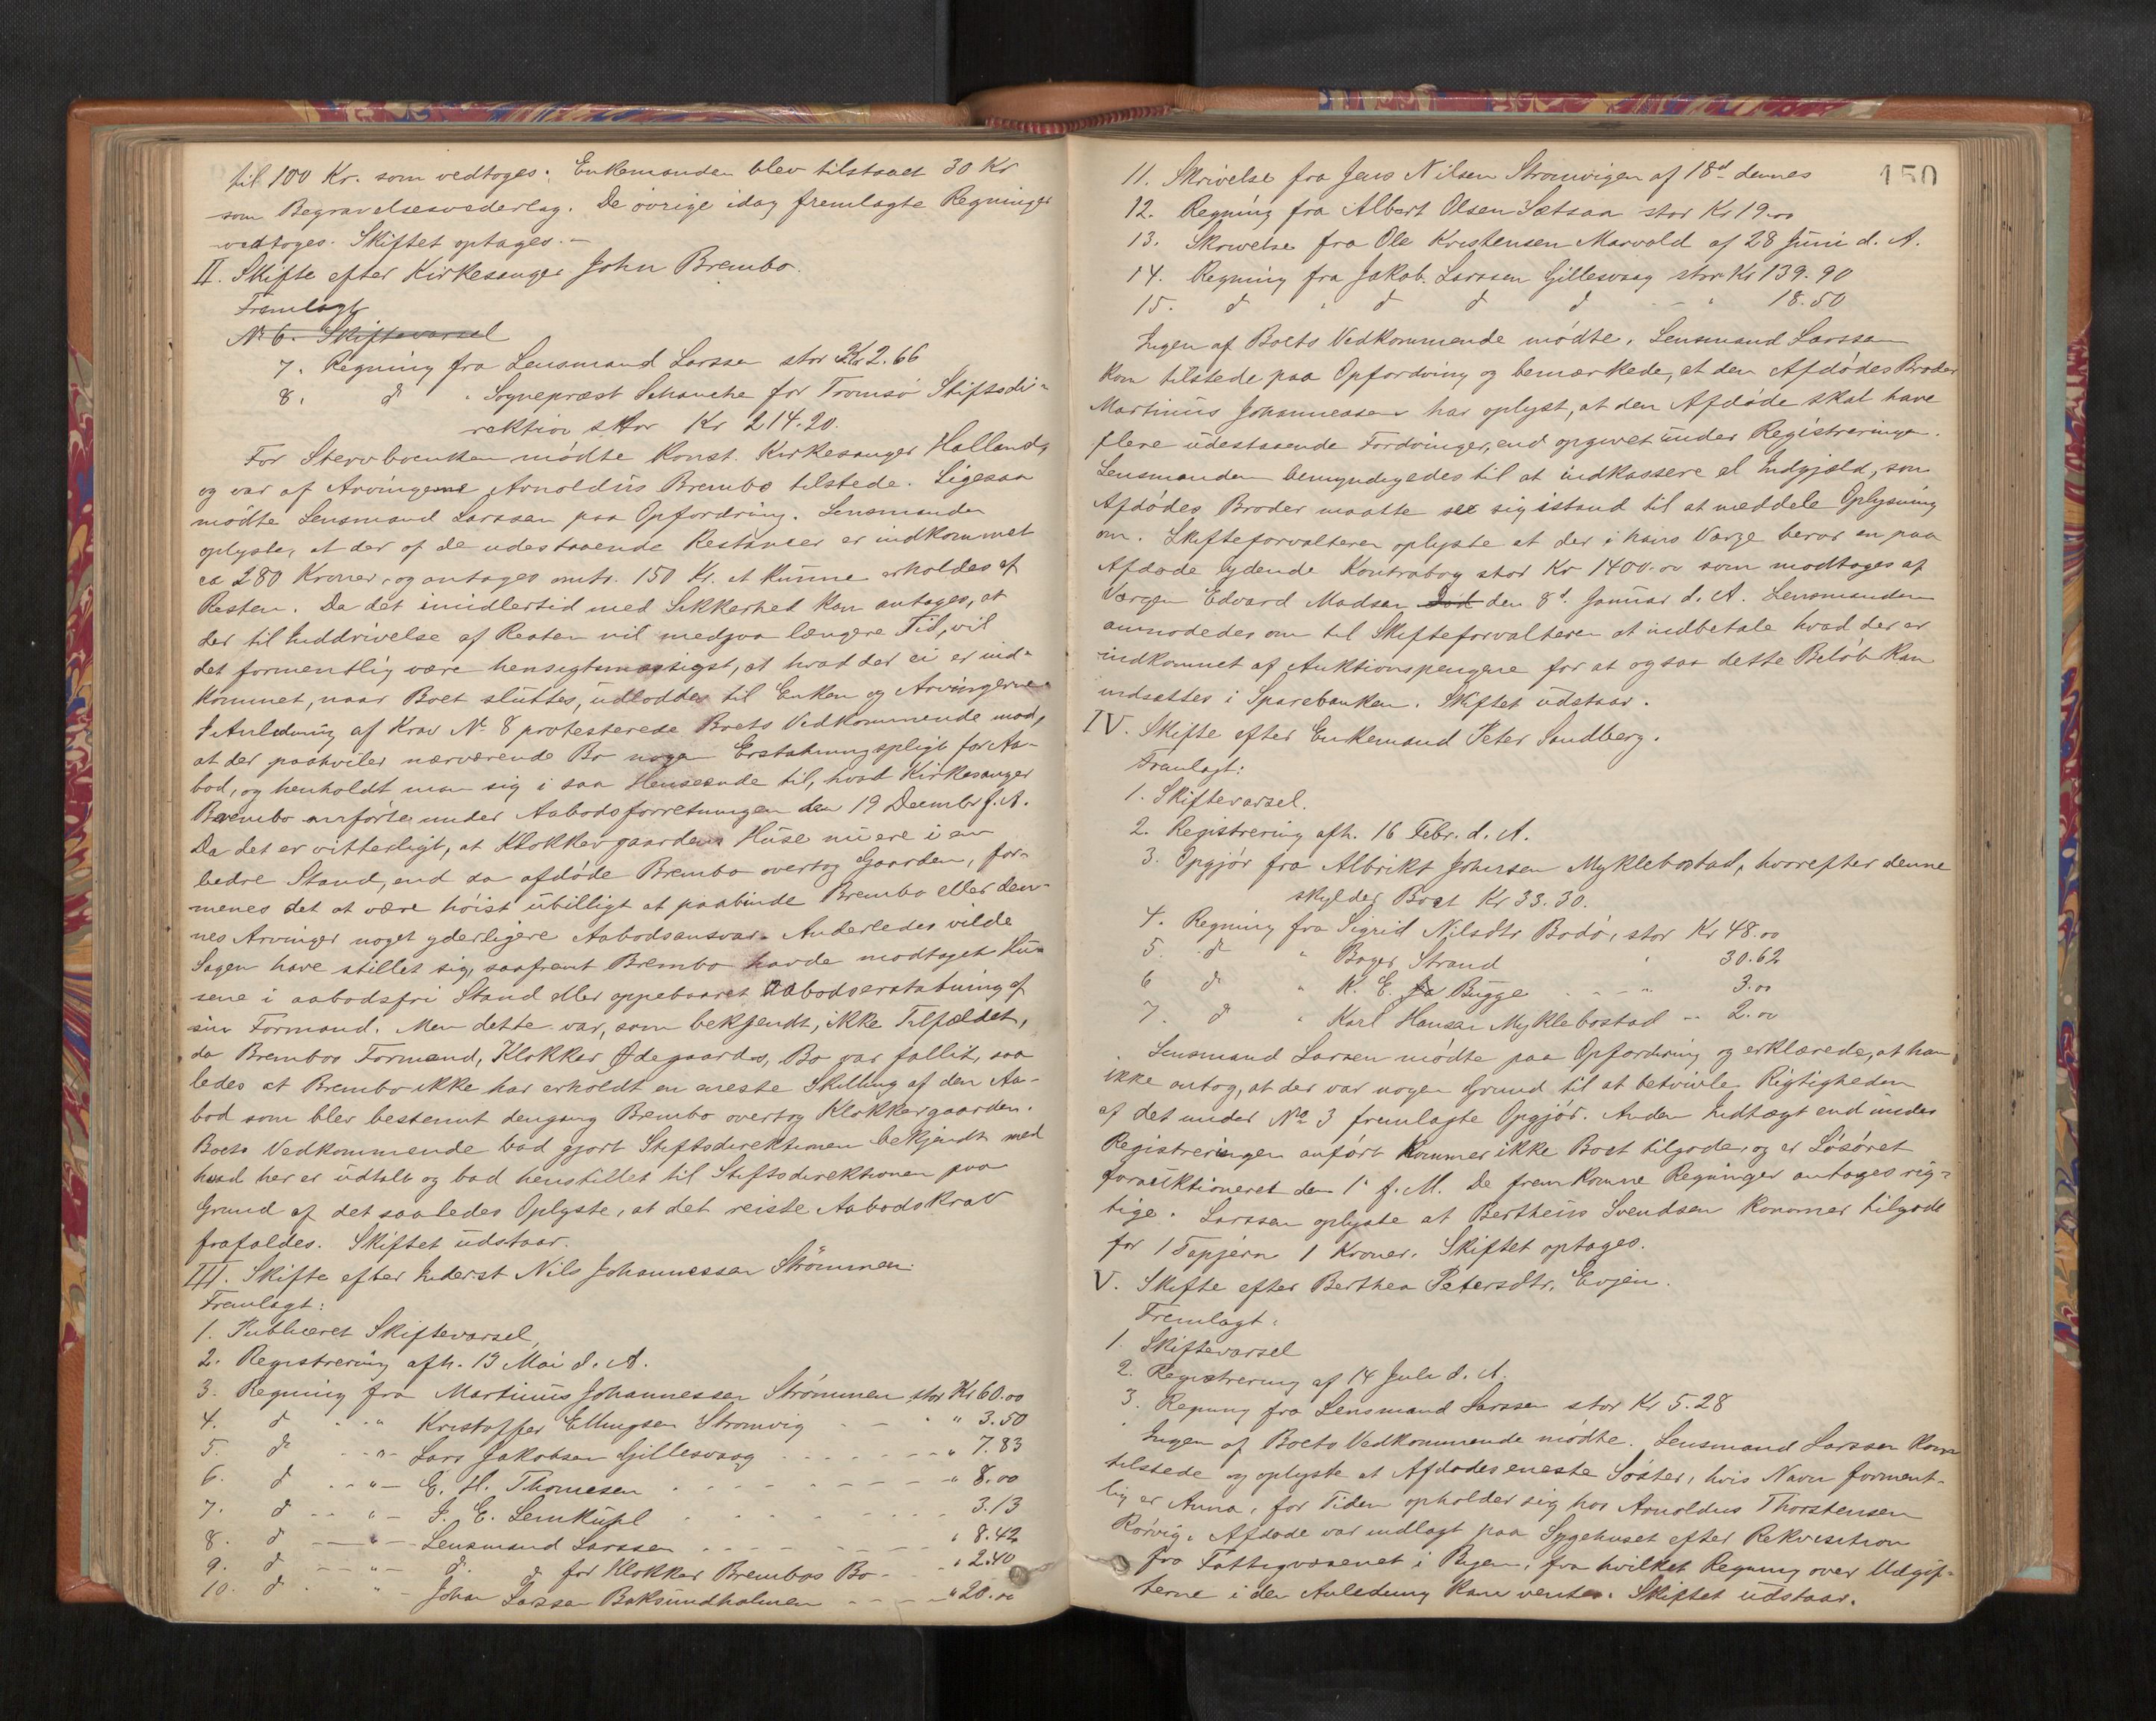 til 100 Kr. som vedtoges. Enkemanden blev tilstaaet 30 Kr
som Begravelsesvederlag. De øvrige idag fremlagte Regninger
vedtoges. Skiftet optages. -
II. Skifte efter Kirkesanger John Brembo.
Fremlagt
No 6. Skiftevarsel
7. Regning fra Lensmand Larssen stor Kr 2.66
8. d " Sogneprest Schanche for Tromsø Stiftsdi-
rektion stor Kr 214.20.
For Stervboenken mødte Konst. Kirkesanger Halland,
og var af Arvingerne Arnoldus Brembo tilstede. Ligesaa
mødte Lensmand Larssen paa Opfordring. Lensmanden
oplyste, at der af de udestaaende Restancer er indkommet
ca 280 Kroner, og antages omtr. 150 Kr. at kunne erholdes af
Resten. Da det imidlertid med Sikkerhed kan antages, at
der til Inddrivelse af Resten vil medgaa længere Tid, vil
det formentlig være hensigtsmæssigst, at hvad der ei er ind-
kommet, naar Boet sluttes, udloddes til Enken og Arvingerne.
I Anledning af Krav No 8 protesterede Boets Vedkommende mod,
at der paahviler nærværende Bo nogen Erstatningspligt for Aa-
bod, og henholdt man sig i saa Henseende til, hvad Kirkesanger
Brembo anførte under Aabodsforretningen den 19 Decembr f. A.
Da det er vitterligt, at Klokkergaardens Huse nu ere i en
bedre Stand, end da afdøde Brembo overtog Gaarden, for-
menes det at være høist ubilligt at paabinde Brembo eller den-
nes Arvinger noget yderligere Aabodsansvar. Anderledes vilde
Sagen have stillet sig, saafremt Brembo havde modtaget Hu-
sene i aabodsfri Stand eller oppebaaret Aabodserstatning af
sin Formand. Men dette var, som bekjendt, ikke Tilfældet,
da Brembos Formand, Klokker Ødegaards, Bo var fallit, saa
ledes at Brembo ikke har erholdt en eneste Skilling af den Aa-
bod som blev bestemt dengang Brembo overtog Klokkergaarden.
Boets Vedkommende bad gjort Stiftsdirektionen bekjendt med
hvad her er udtalt og bad henstillet til Stiftsdirektionen paa
Grund af det saaledes Oplyste, at det reiste Aabodskrav
frafaldes. Skiftet udstaar.
III. Skifte efter Inderst Nils Johannessen Strömmen.
Fremlagt:
1. Publiceret Skiftevarsel,
2. Registrering afh. 13 Mai d. A.
3. Regning fra Martinus Johannessen Strømmen stor Kr 60.00
4. d " Kristoffer Ellingsen Stromvig " 3.50
5. d " Lars Jakobsen Gillesvaag " 7.83
6. d " E. H. Thomesen " 8.00
7. d " J. E. Lemkuhl 3.13
8. d " Lensmand Larssen " 8.42
9. d " d. d for Klokker Brembos Bo " 2.40
10. d " Johan Larssen Baksundholmen " 20.00
150
11. Skrivelse fra Jens Nilsen Stromvigen af 18d dennes
12. Regning fra Albert Olsen Sætsaa stor Kr 19.00
13. Skrivelse fra Ole Kristensen Marvold af 28 Juni d. A.
14. Regning fra Jakob Larssen Gillesvaag stor Kr 139.90
15. d " d d d " 18.50
Ingen af Boets Vedkommende mødte. Lensmand Larssen
kom tilstede paa Opfordring og bemærkede, at den Afdødes Broder
Martinus Johannessen har oplyst, at den Afdøde skal have
flere udestaaende Fordringer, end opgivet under Registreringen.
Lensmanden bemyndigedes til at indkassere al Indgjæld, som
Afdødes Broder maatte see sig istand til at meddele Oplysning
om. Skifteforvalteren oplyste at der i hans Værge beror en paa
Afdøde lydende Kontrabog stor Kr 1400.00 som modtoges af
Værgen Edvard Madsen den 8d. Januar d. A. Lensmanden
anmodedes om til Skifteforvalteren at indbetale hvad der er
indkommet af Auktionspengene for at ogsaa dette Beløb kan
indsættes i Sparebanken. Skiftet udstaar.
IV. Skifte efter Enkemand Peter Sandberg.
Fremlagt:
1. Skiftevarsel.
2. Registrering afh. 16 Febr. d. A.
3. Opgjør fra Albrikt Johnsen Myklebostad, hvorefter denne
skylder Boet Kr 33.30.
4. Regning fra Sigrid Nilsdtr Bodø, stor Kr 48.00
5. d " Bager Strand " 30.62
6 d " K. E. Bugge " 3.00
7. d " Karl Hansen Myklebostad " 2.00
Lensmand Larsen mødte paa Opfordring og erklærede, at han
ikke antog, at der var nogen Grund til at betvivle Rigtigheden
af det under No 3 fremlagte Opgjør. Anden Indtægt end under
Registreringen anført kommer ikke Boet tilgode, og er Løsøret
forauktioneret den 1d f. M. De fremkomne Regninger antages rig-
tige. Larssen oplyste at Bertheus Svendsen kommer tilgode
for 1 Tapjern 1 Krone. Skiftet optages.
V. Skifte efter Berthea Petersdtr. Evjen.
Fremlagt.
1. Skiftevarsel
2. Registrering af 14 Juli d. A.
3. Regning fra Lensmand Larssen stor Kr 5.28
Ingen af Boets Vedkommende mødte. Lensmand Larssen kom
tilstede og oplyste at Afdødes eneste Søster, hvis Navn forment-
lig er Anna, for Tiden opholder sig hos Arnoldus Thorstensen
Rørvig. Afdøde var indlagt paa Sygehuset efter Rekvisition
fra Fattigvæsenet i Byen, fra hvilket Regning over Udgif-
terne i den Anledning kan ventes. Skiftet udstaar.